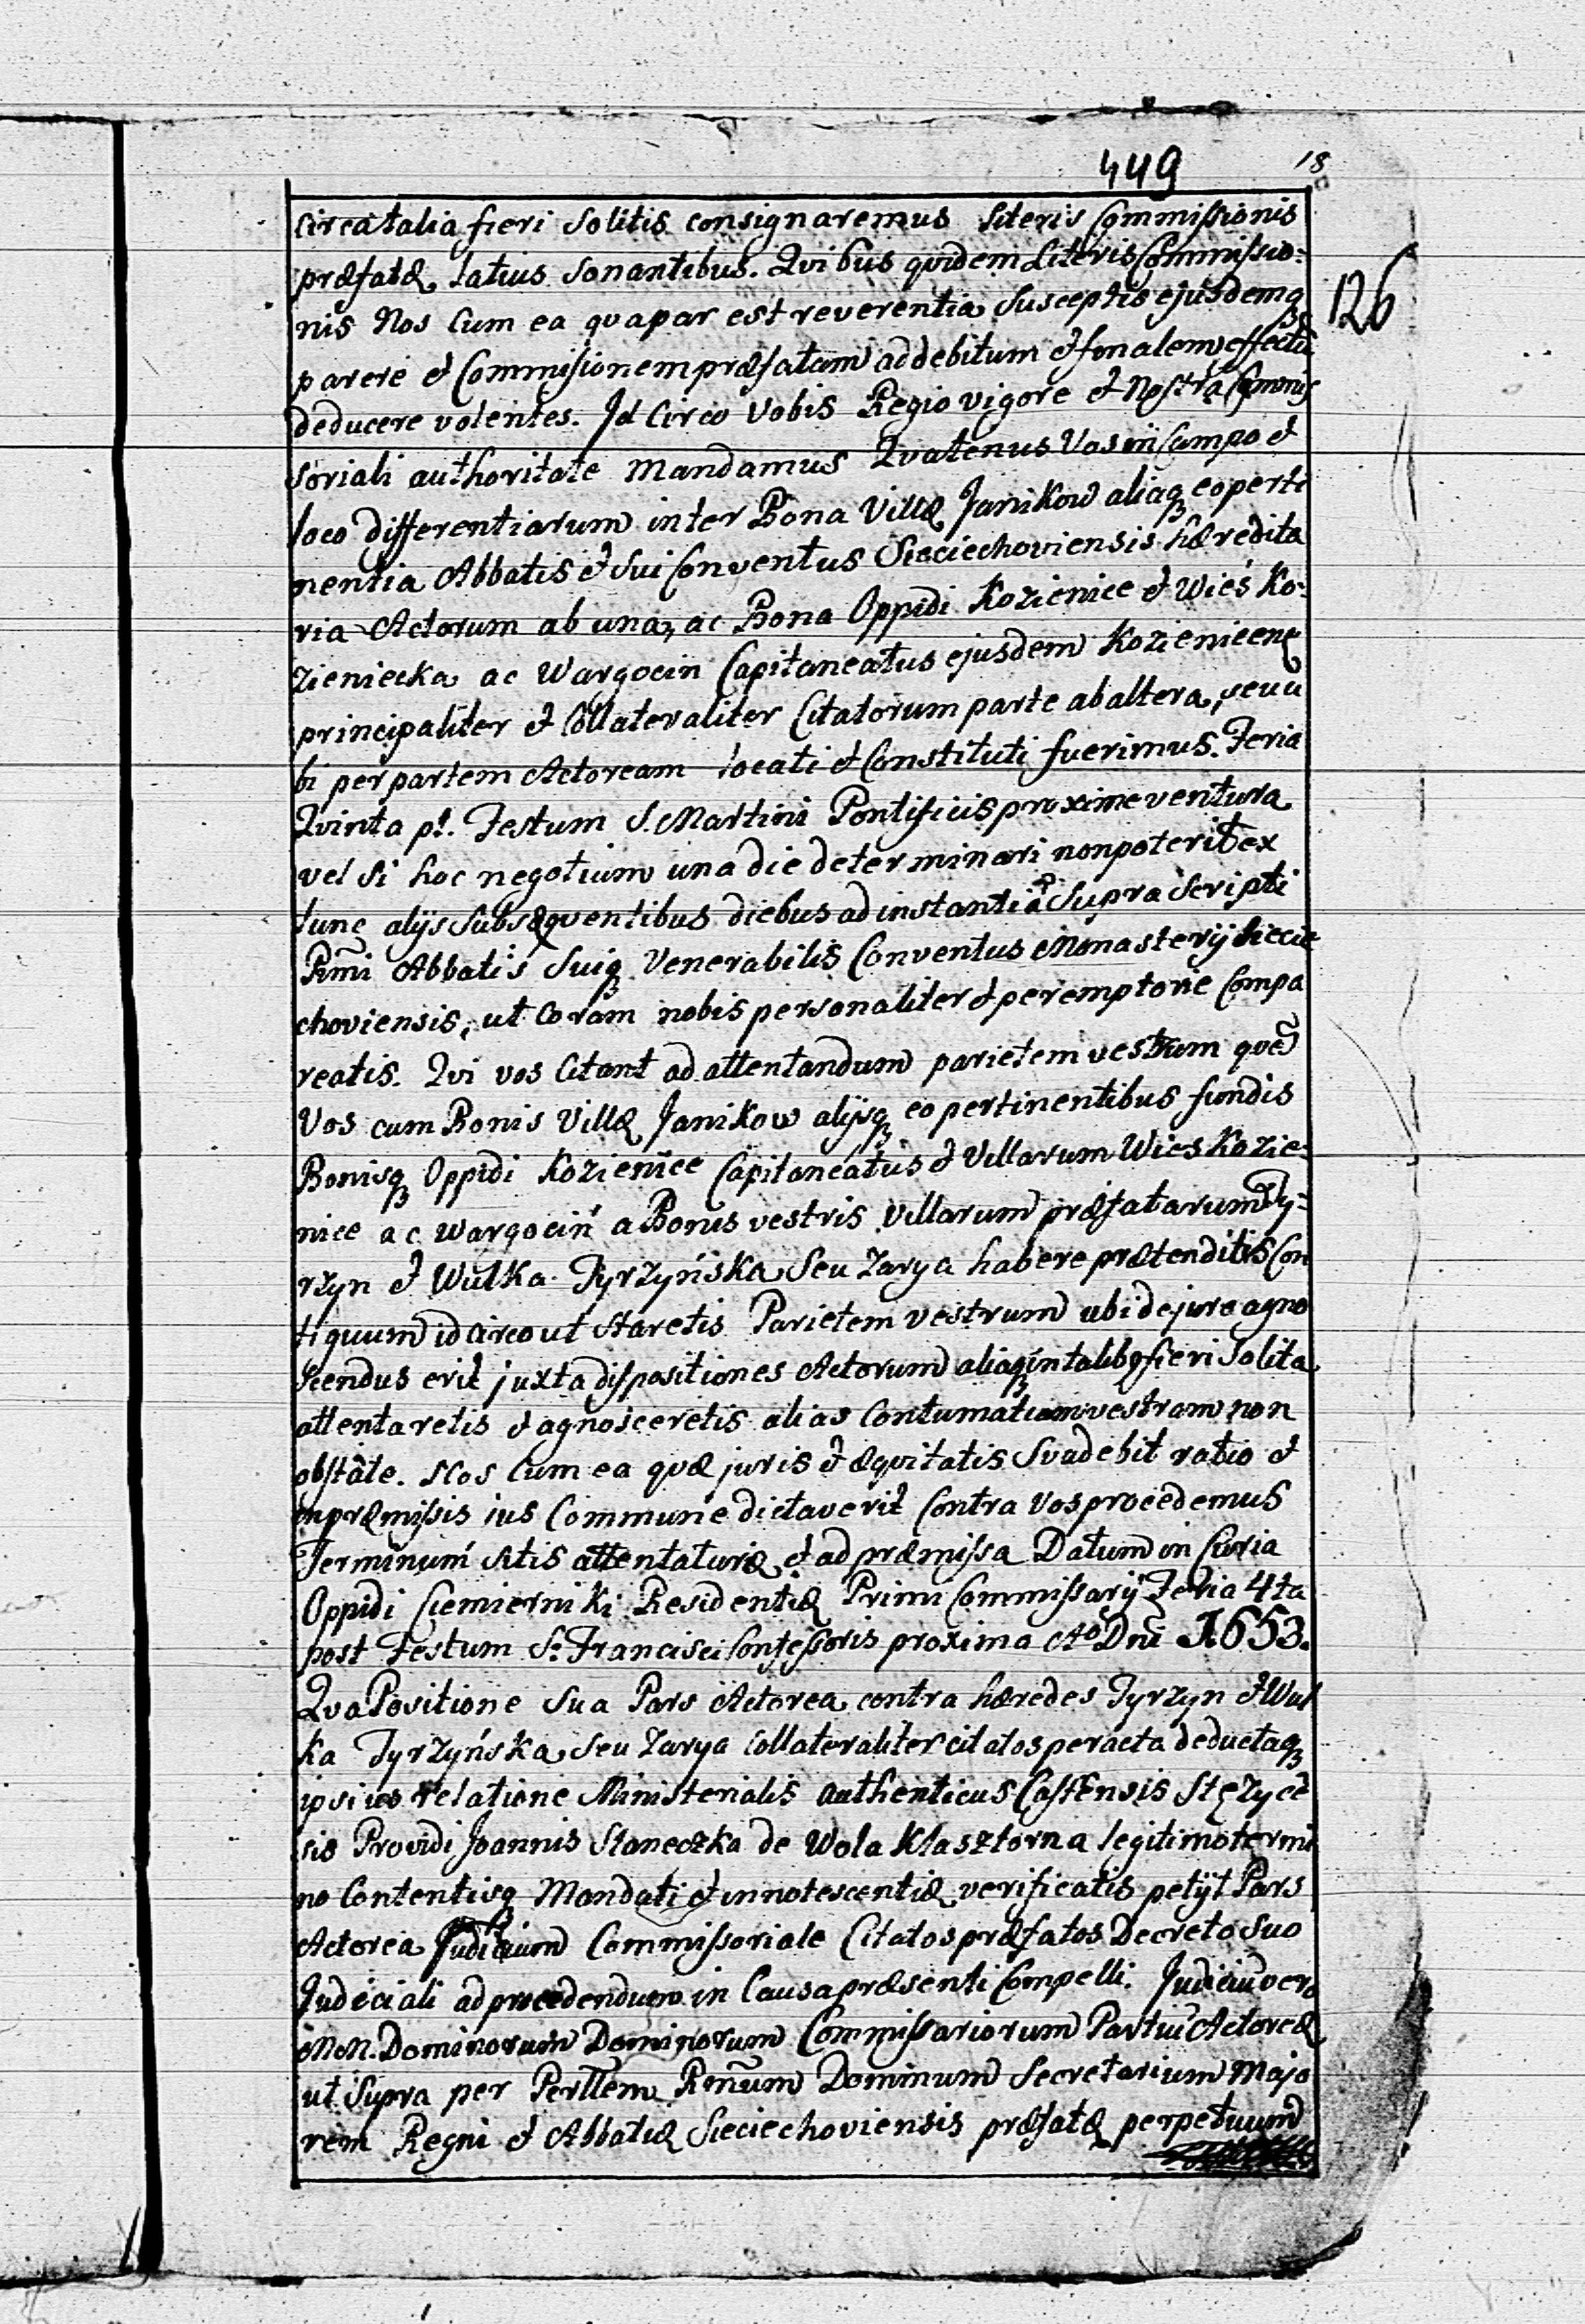 449 18
126
circa talia fieri solitis consignaremus literis Commissionis
præfatæ latius sonantibus. Qvibus qvidem Literis Commissio:
nis Nos cum ea qva par est reverentia susceptis ejusdemq
parere et Commissionem præfatam ad debitum et finalem effectū
deducere volentes. Id Circo Vobis Regio vigore et Nostra Commis
soriali authoritate mandamus Qvatenus Vos in Campo et
loco differentiarum inter Bona Villæ Janikow aliaq eo perti
nentia Abbatis et sui Conventus Sieciechoviensis hæredita
ria Actorum ab una, ac Bona Oppidi Kozienice et Wieś Ko:
zieniecka ac Wargocin Capitaneatus ejusdem Kozienicenę
principaliter et Collateraliter Citatorum parte ab altera, seu u
bi per partem Actoream locati et Constituti fuerimus. Feria
Qvinta pt. Festum S. Martini Pontificis proxime ventura
vel si hoc negotium una die determinari non poterit ex
tunc alijs subseqventibus diebus ad instantiā supra scripti
Rm̃i Abbatis suiq Venerabilis Conventus Monasterij Siecie
choviensis, ut coram nobis personaliter et peremptorie Compa
reatis. Qvi vos Citant ad attentandum parietem vestrum qvẽ
Vos cum Bonis Villæ Janikow alijsq eo pertinentibus fundis
Bonisq Oppidi Kozienice Capitaneatus et Villarum Wies Kozie:
nice ac Wargocin a Bonis vestris Villarum præfatarum Ty:
rzyn et Wulka Tyrzyńska seu Zarya habere prætenditis Con
tiguum id circo ut staretis Parietem vestrum ubi de jure agno
scendus erit juxta dispositiones Actorum aliaq in talibq fieri solita
attentaretis et agnosceretis alias Contumatiam vestram non
obstāte. Nos Cum ea quæ juris et æqvitatis svadebit ratio et
in præmissis ius Commune dictaverit Contra vos procedemus
Terminum sitis attentaturiæ et ad præmissa Datum in Curia
Oppidi Ciemierniki Residentiæ Primi Commissarij Feria 4ta
post Festum S. Francisci Confessoris proxima Aō Dnī 1653.
Qva Positione sua Pars Actorea contra hæredes Tyrzyn et Wul
ka Tyrzyńska seu Zarya Collateraliter citatos peracta deductaq
ipsius relatione Ministerialis authenticus Castrensis Stęzycē
sis Providi Joannis Staneczka de Wola Klasztorna legitimo termi
no Contentisq Mandati et innotescentiæ verificatis petijt Pars
Actorea Judicium Commissoriale Citatos præfatos Decreto suo
Judiciali ad procedendum in Causa præsenti Compelli. Judiciū vero
MM. Dominorum Dominorum Commissariorum Partiū Actoreæ
ut supra per Perllem Rm̃um Dominum Secretarium Majo
rem Regni et Abbatiæ Sieciechoviensis præfatæ perpetuum